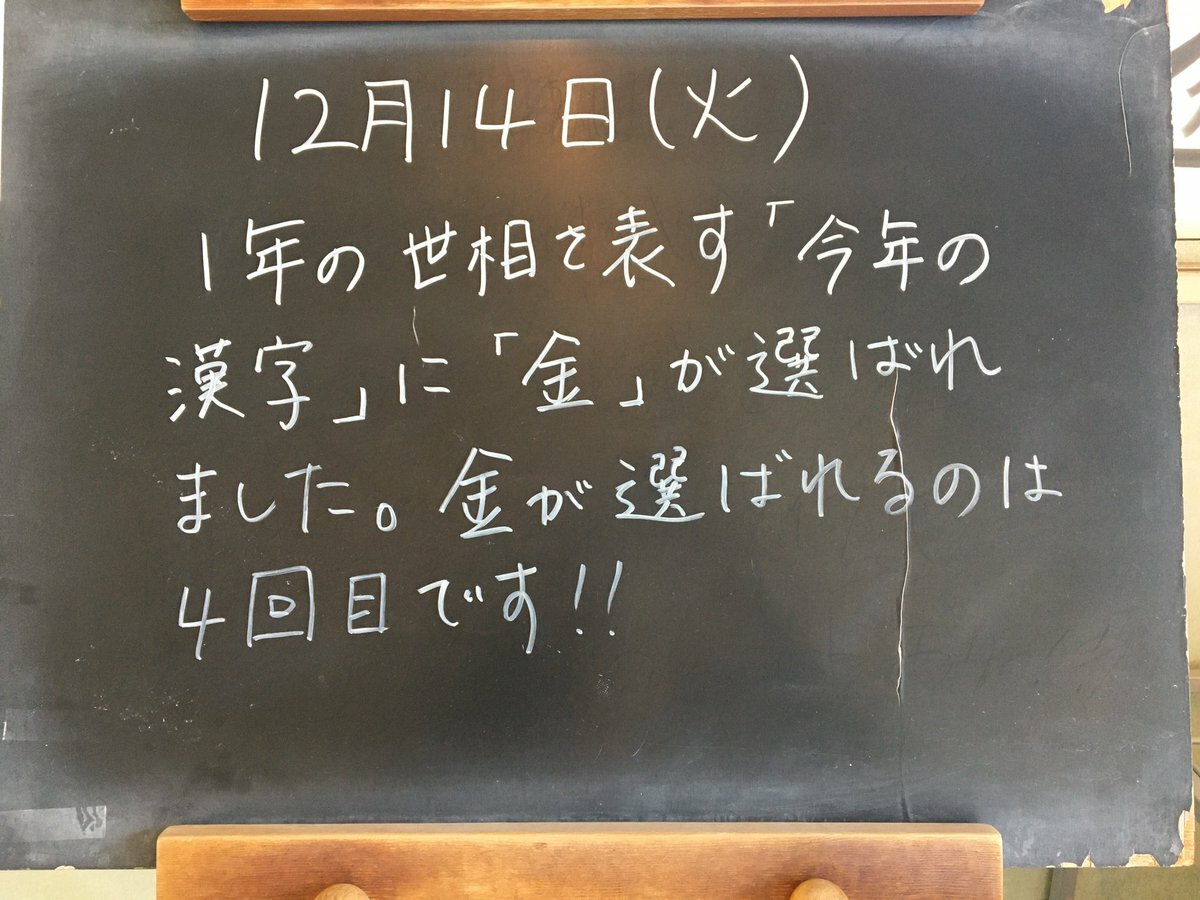 12月14日(火)
1年の世相を表す「今年の
漢字」に「金」が選ばれ
ました。金が選ばれるのは
4回目です!!